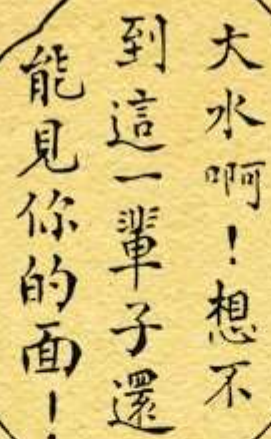 大水啊！想不
到這一輩子還
能見你的面！